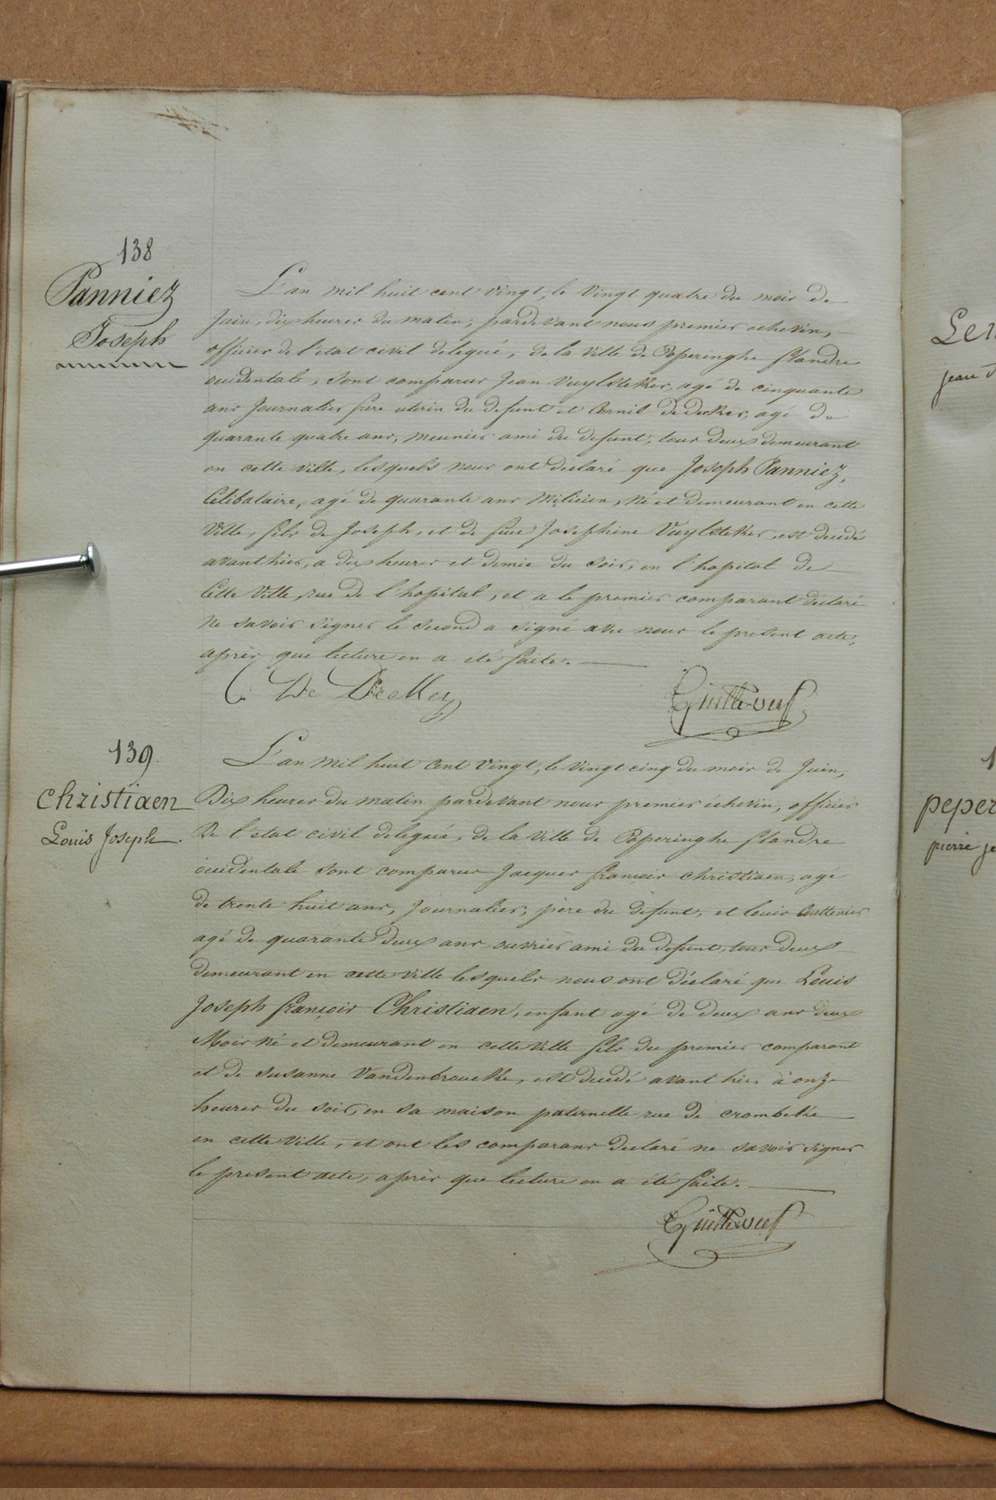 138
Panniez
Joseph
L'an mil huit cent vingt, le vingt quatre du mois de
Juin, dix heures du matin, pardevant nous premier echevin,
officier de l'etat civil delegué, de la ville de Poperinghe flandre
occidentale, sont comparus Jean Vuylsteker, agé de cinquante
ans Journalier frere uterin du defunt et Cornil Dedecker, agé de
quarante quatre ans, meunier ami du defunt, tous deux demeurant
en cette ville, lesquels nous ont déclaré que Joseph Panniez,
Celibataire, agé de quarante ans Milicien, né et demeurant en cette
ville, fils de Joseph, et de feue Josephine Vuylsteker, est decedé
avanthier, a dix heures et demie du soir, en l'hopital de
Cette ville, rue de l'hopital, et a le premier comparant déclaré
ne savoir signer le second a signé avec nous le present acte,
après que lecture en a été faite.
C: De Decker
139
Christiaen
Louis Joseph
L'an mil huit cent vingt, le vingt cinq du mois de Juin,
Dix heures du matin pardevant nous premier échevin, officier
de l'etat civil delegué, de la ville de Poperinghe flandre
occidentale sont comparus Jacques françois christiaen, agé
de trente huit ans, Journalier, père du defunt, et Louis
agé de quarante deux ans ouvrier ami du defunt, tous deux
demeurant en cette ville lesquels nous ont déclaré que Louis
Joseph françois Christiaen, enfant agé de deux ans deux
Mois né et demeurant en cette ville fils du premier comparant
et de susanne Vandenbroucke, est decedé avant hier à onze
heures du soir, en sa maison paternelle rue de crombeke
en cette ville, et ont les comparans declaré ne savoir signer
le present acte, après que lecture en a été faite.
Ler
jean
peper
pierre je